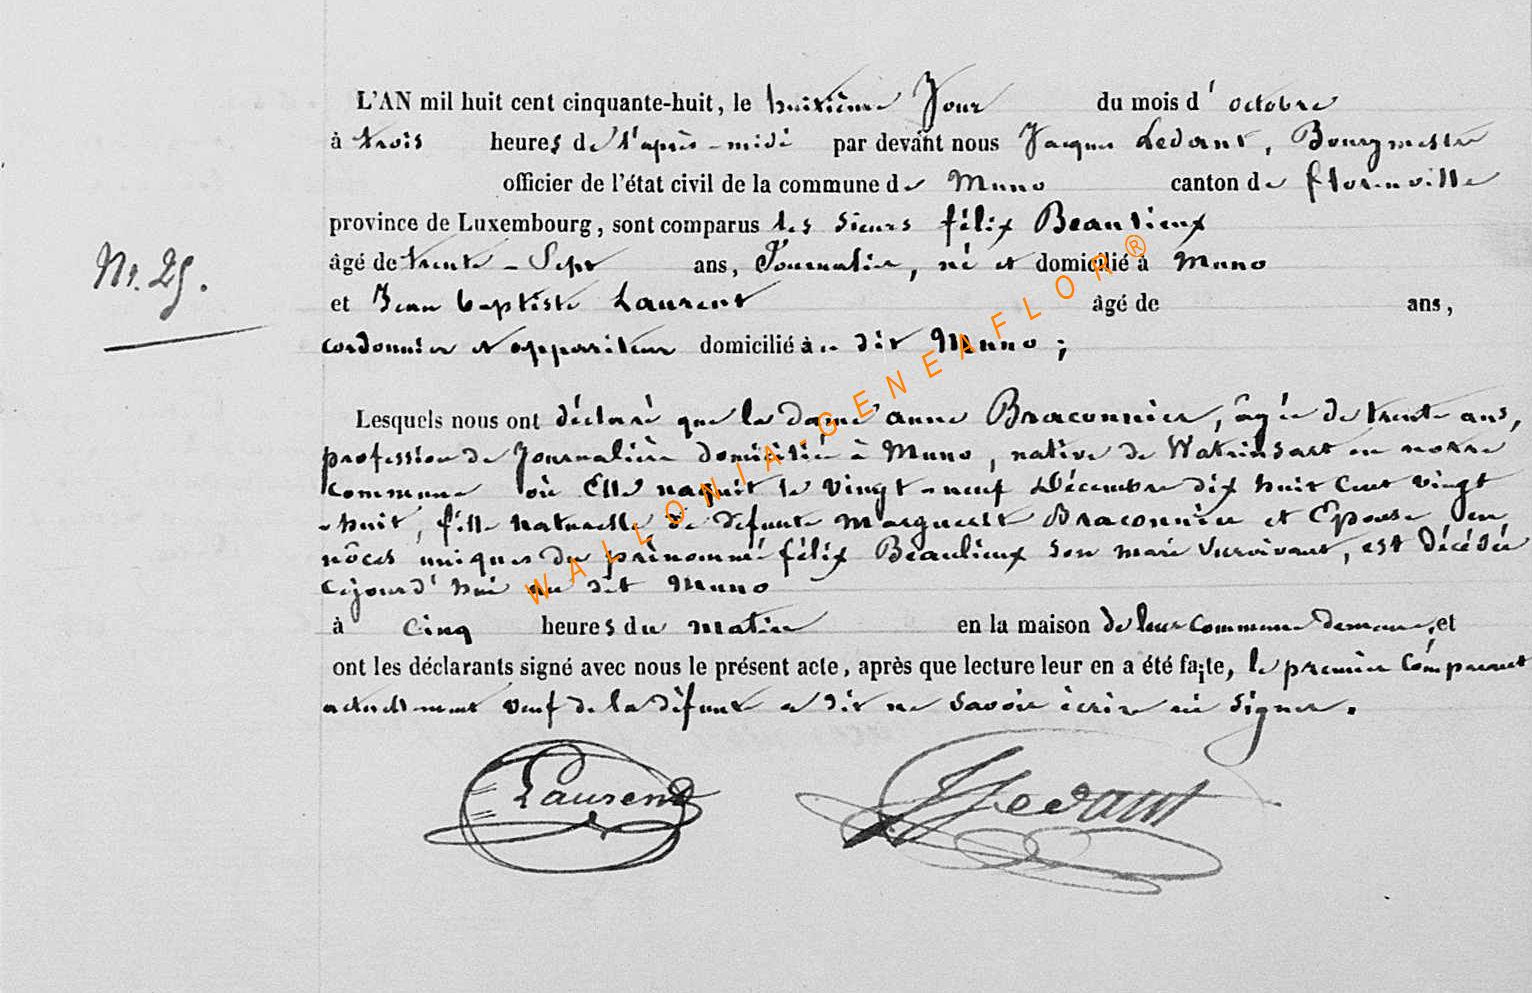 L'AN mil huit cent cinquante-huit, le huitième Jour du mois d' octobre
à trois heures de l'après-midi par devant nous Jacques Ledant, Bourgmestre
officier de l'état civil de la commune de Muno canton de florenville
province de Luxembourg, sont comparus les sieurs félix Beaulieux
Nr. 25.
âgé de trente-Sept ans, Journalier, né et domicilié à Muno
et Jean baptiste Laurent âgé de ans,
cordonnier et appariteur domicilié à dit Muno ;
Lesquels nous ont déclaré que la dame anne Braconnier, âgée de trente ans,
profession de Journalière domiciliée à Muno, native de Watrinsart en notre
commune où Elle naquit le vingt-neuf Décembre dix huit Cent vingt
-huit, fille naturelle de défunte Marguerite Braconnier et Epouse en
nôces uniques du prénommé félix Beaulieux son mari survivant, est décédée
cejourd'hui au dit Muno
à cinq heures du matin en la maison de leur commune demeure, et
ont les déclarants signé avec nous le présent acte, après que lecture leur en a été faite, le premier Comparant
actuellement veuf de la défunte a dit ne savoir écrire ni signer.
Laurent JLedant
WALLONIA-GENEAFLOR®